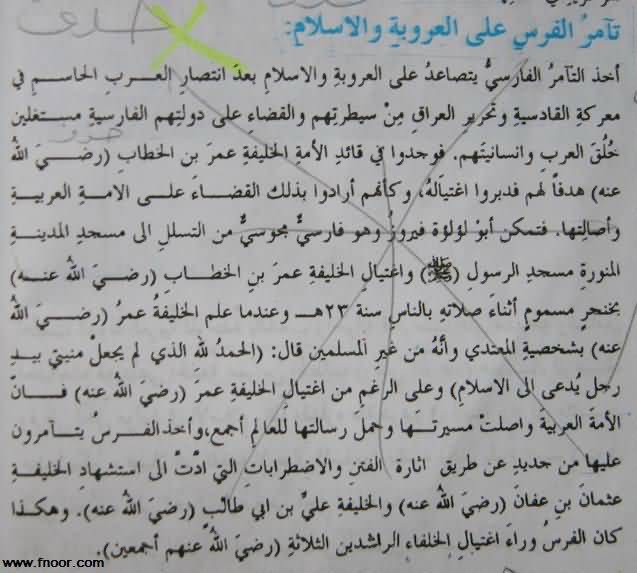 حذف
تآمرُ الفرسِ على العروبةِ والاسلامِ:
أخذ التآمرُ الفارسيُّ يتصاعدُ على العروبةِ والاسلامِ بعدَ انتصارِ العربِ الحاسمِ في
معركةِ القادسيةِ وتحريرِ العراقِ مِنْ سيطرتِهم والقضاءِ على دولتِهم الفارسيةِ مستغلين
خُلُقَ العربِ وانسانيتَهم. فوجدوا في قائدِ الأمةِ الخليفةِ عمرَ بن الخطابِ (رضيَ اللهُ
عنه) هدفاً لهم فدبروا اغتيالَهُ، وكأنهم أرادوا بذلك القضاءَ على الامةِ العربيةِ
وأصالتِها. فتمكن أبوْ لؤلؤة فيروزُ وهو فارسيٌّ مجوسيٌّ من التسللِ الى مسجدِ المدينةِ
المنورةِ مسجدِ الرسولِ (ﷺ) واغتيالِ الخليفةِ عمرَ بنِ الخطابِ (رضيَ اللهُ عنه)
بخنجرٍ مسمومٍ أثناءَ صلاتهِ بالناسِ سنة ٢٣هـ وعندما علم الخليفةُ عمرُ (رضيَ اللهُ
عنه) بشخصيةِ المعتدي وأنَّهُ مَن غيرِ المسلمين قال: (الحمدُ للهِ الذي لم يجعلْ منيتي بيدِ
رجلٍ يُدعى الى الاسلامِ) وعلى الرغمِ من اغتيالِ الخليفةِ عمرَ (رضيَ اللهُ عنه) فانّ
الأمةَ العربيةَ واصلتْ مسيرتَها وحملَ رسالتها للعالمِ أجمع، وأخذ الفرسُ يتآمرون
عليها من جديدٍ عن طريقِ اثارة الفتنِ والاضطراباتِ التي ادّتْ الى استشهادِ الخليفةِ
عثمانَ بنِ عفانَ (رضيَ اللهُ عنه) والخليفةِ عليِّ بنِ ابي طالبٍ (رضيَ اللهُ عنه). وهكذا
كان الفرسُ وراءَ اغتيالِ الخلفاءِ الراشدين الثلاثةِ (رضيَ اللهُ عنهم أجمعين).
www.fnoor.com